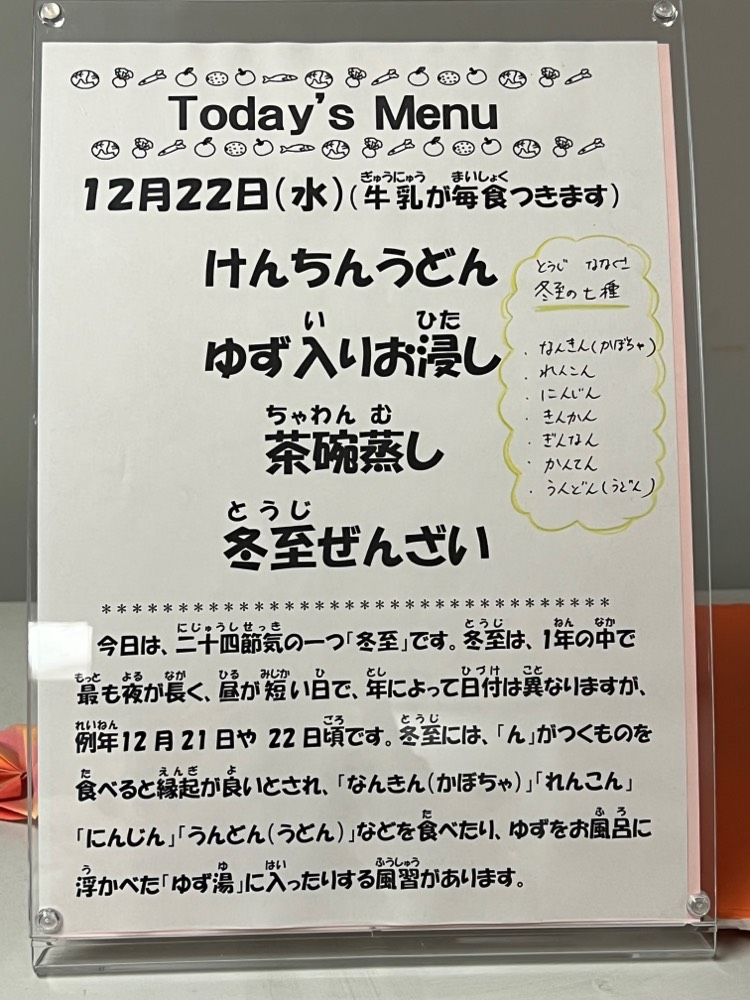 Today's Menu
12月22日(水)(牛乳が毎食つきます)
けんちんうどん
ゆず入りお浸し
茶碗蒸し
冬至ぜんざい
とうじ ななくさ
冬至の七種
・なんきん(かぼちゃ)
・れんこん
・にんじん
・きんかん
・ぎんなん
・かんてん
・うんどん(うどん)
***********************************
今日は、二十四節気の一つ「冬至」です。冬至は、1年の中で
最も夜が長く、昼が短い日で、年によって日付は異なりますが、
例年12月21日や22日頃です。冬至には、「ん」がつくものを
食べると縁起が良いとされ、「なんきん(かぼちゃ)」「れんこん」
「にんじん」「うんとん(うどん)」などを食べたり、ゆずをお風呂に
浮かべた「ゆず湯」に入ったりする風習があります。